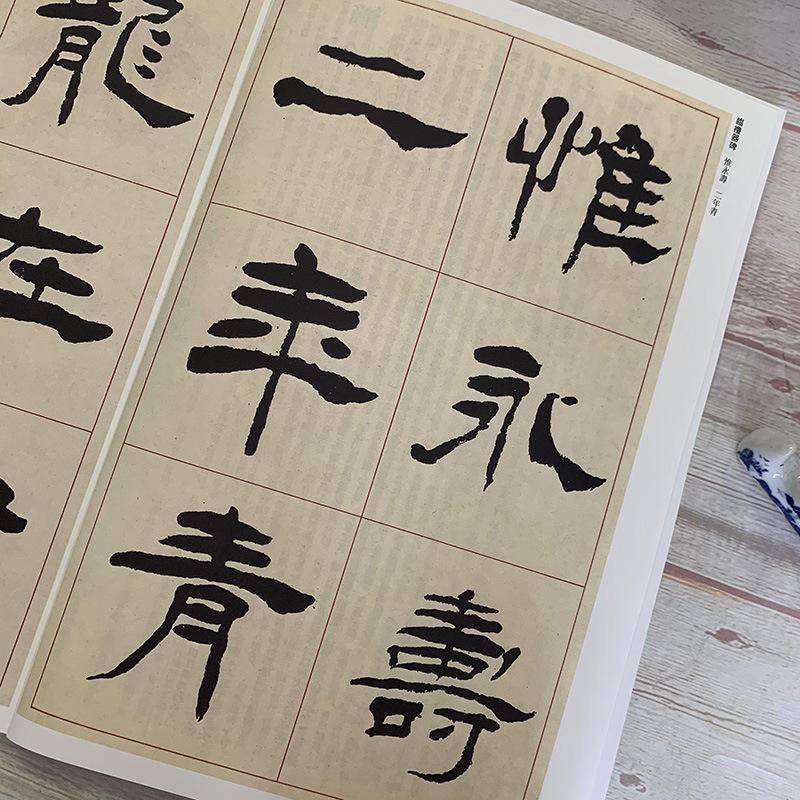 臨禮器碑 惟永壽 二年青
惟永壽
二年青
龍在